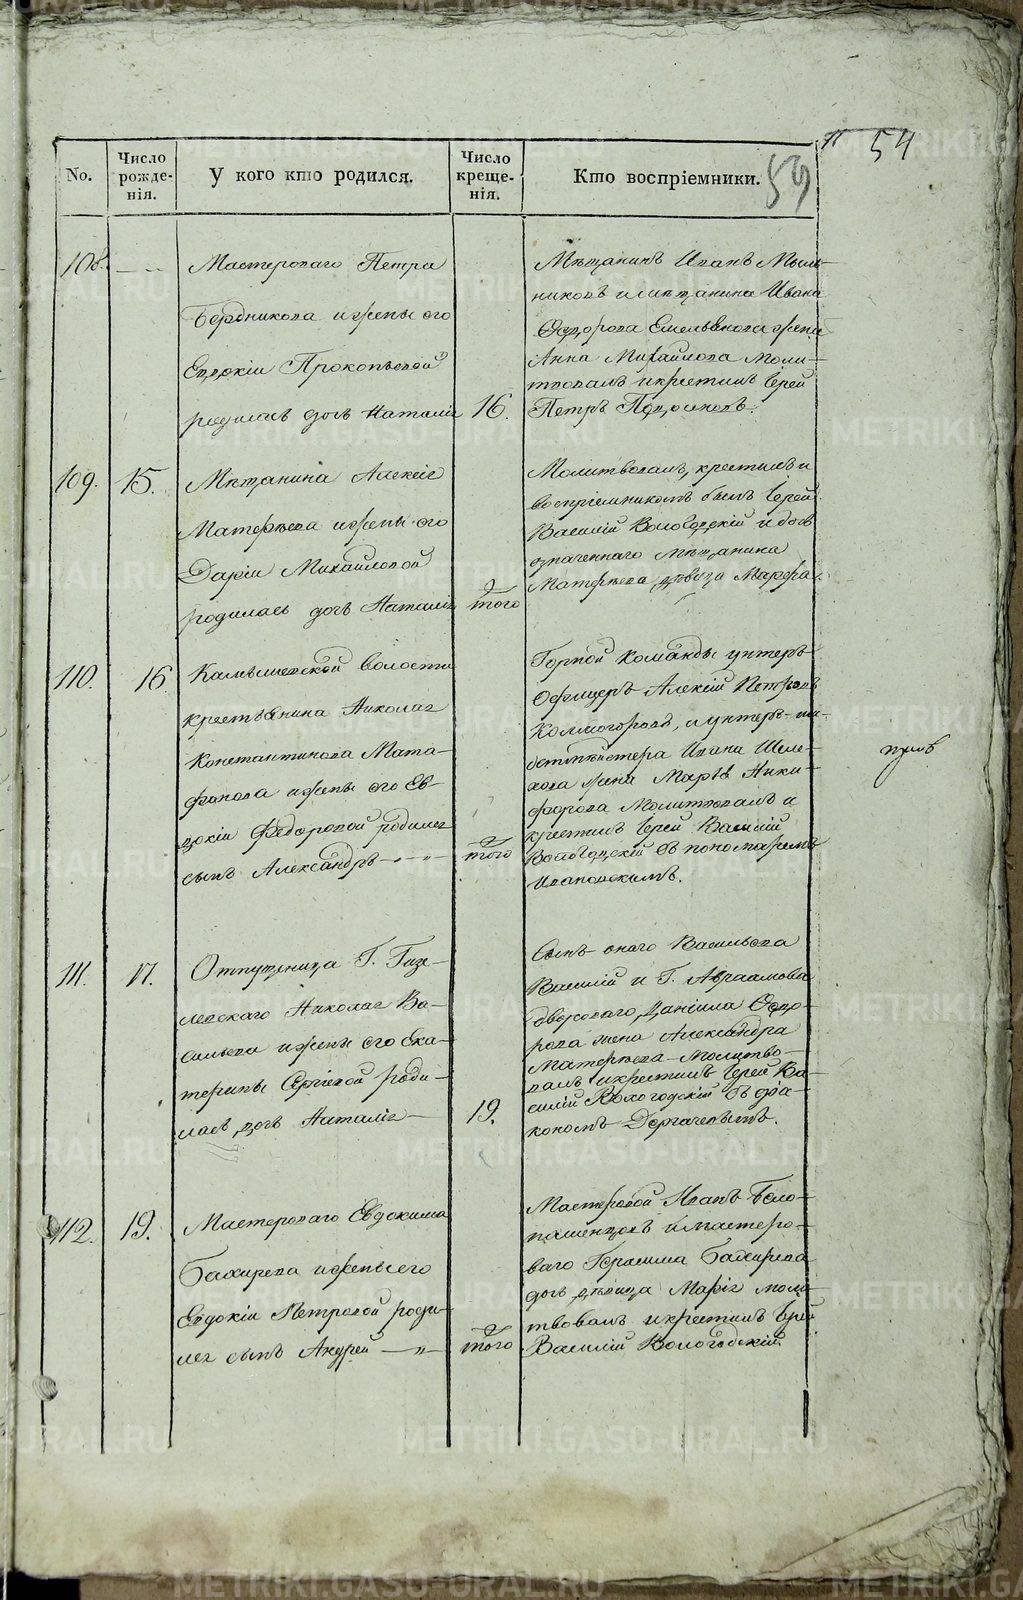 54
59
No.
Число рожденія.
У кого кто родился.
Число крещенія.
Кто воспріемники.
108. — „
Мастероваго Петра
Бердникова и жены его
Евдокіи Прокопьевой
родилась дочь Наталія
16.
Мѣщанинъ Иванъ Мыль-
никовъ и мѣщанина Ивана
Ѳедорова Емельянова жена
Анна Михайлова Моли-
твовалъ и крестилъ Іерей
Петръ
109.
15.
Мѣщанина Алексія
Матвѣева и жены его
Даріи Михайловой
родилась дочь Наталія
того
Молитвовалъ, крестилъ и
воспріемникомъ былъ Іерей
Василій Вологодскій и дочь
означеннаго Мѣщанина
Матвѣева дѣвица Марфа.
110.
16
волости
крестьянина Николая
Константинова Мата-
фонова и жены его Ев-
докіи Ѳедоровой родился
сынъ Александръ — „ — „
того
Горной команды унтеръ-
Офицеръ Алексій Петровъ
Колмогоровъ, и унтеръ-ша-
Ивана Шеле-
хова жена Марья Ники-
форова Молитвовалъ и
крестилъ Іерей Василій
Вологодскій съ пономаремъ
Ивановскимъ.
111.
17.
Отпущеника Г.
Николая Ва-
сильева и жены его Ека-
терины Сергіевой роди-
лась дочь Наталія —
19.
Сынъ онаго Васильева
Василій и Г. Авраамова
двороваго Даніила Ѳедо-
рова жена Александра
Матвѣева — Молитво-
валъ и крестилъ Іерей Ва-
силій Вологодскій съ діа-
кономъ Дергачевымъ.
112.
19.
Мастероваго Евдокима
Бахирева и жены его
Евдокіи Петровой роди-
лся сынъ Андрей — „
того
Мастеровой Иванъ Бело-
пашенцовъ и мастеро-
ваго Герасима Бахирева
дочь дѣвица Марія моли-
твовалъ и крестилъ Іерей
Василій Вологодскій
METRIKI.GASO-URAL.RU